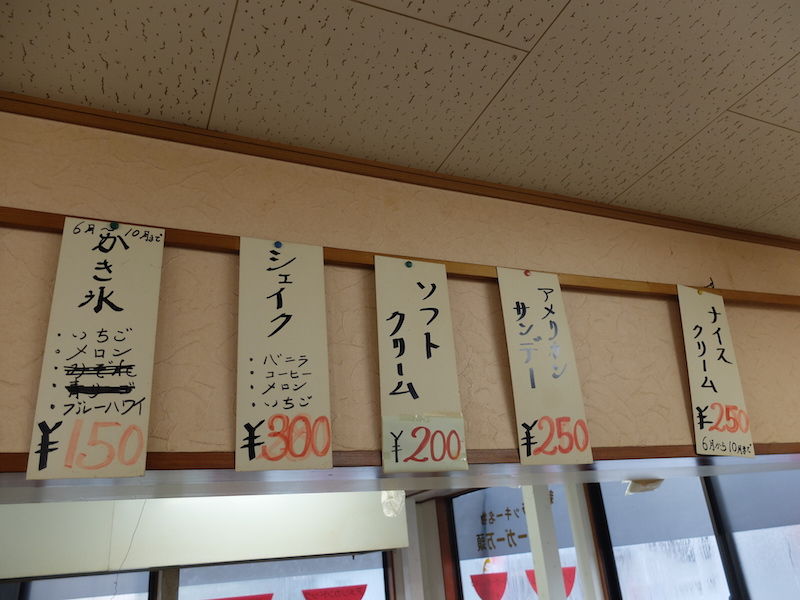 6月〜10月まで
かき氷
・いちご
・メロン
・みぞれ
・ブルーハワイ
¥150
シェイク
・バニラ
・コーヒー
・メロン
・いちご
¥300
ソフト
クリーム
¥200
アメリカン
サンデー
¥250
ナイス
クリーム
¥250
6月から10月まで